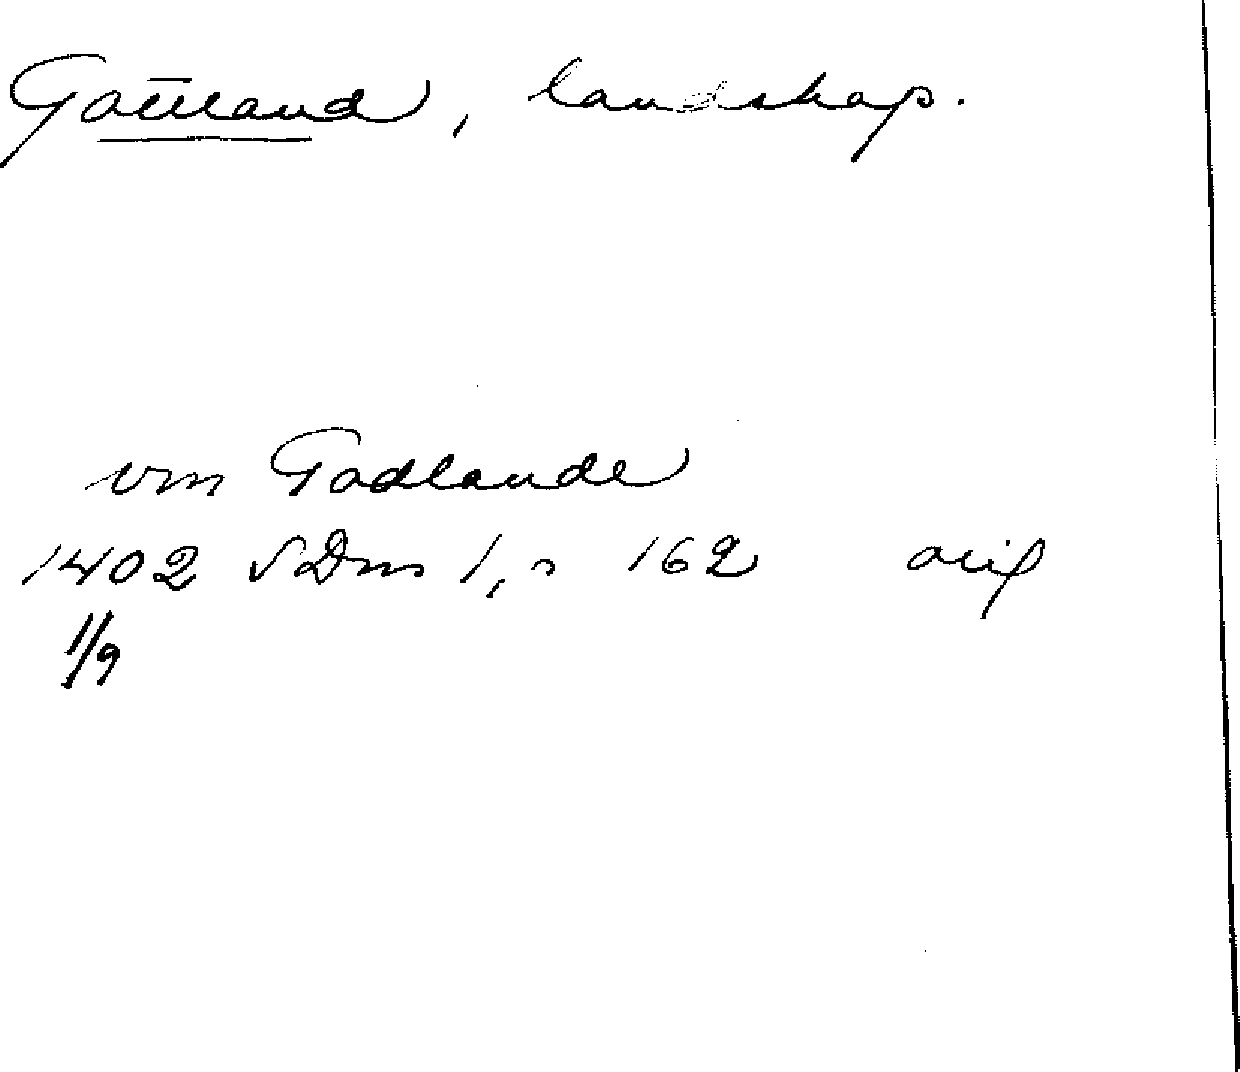 Gottland, landskap.
von Godlande
1402 SDns 1, s 162 orig
1/9